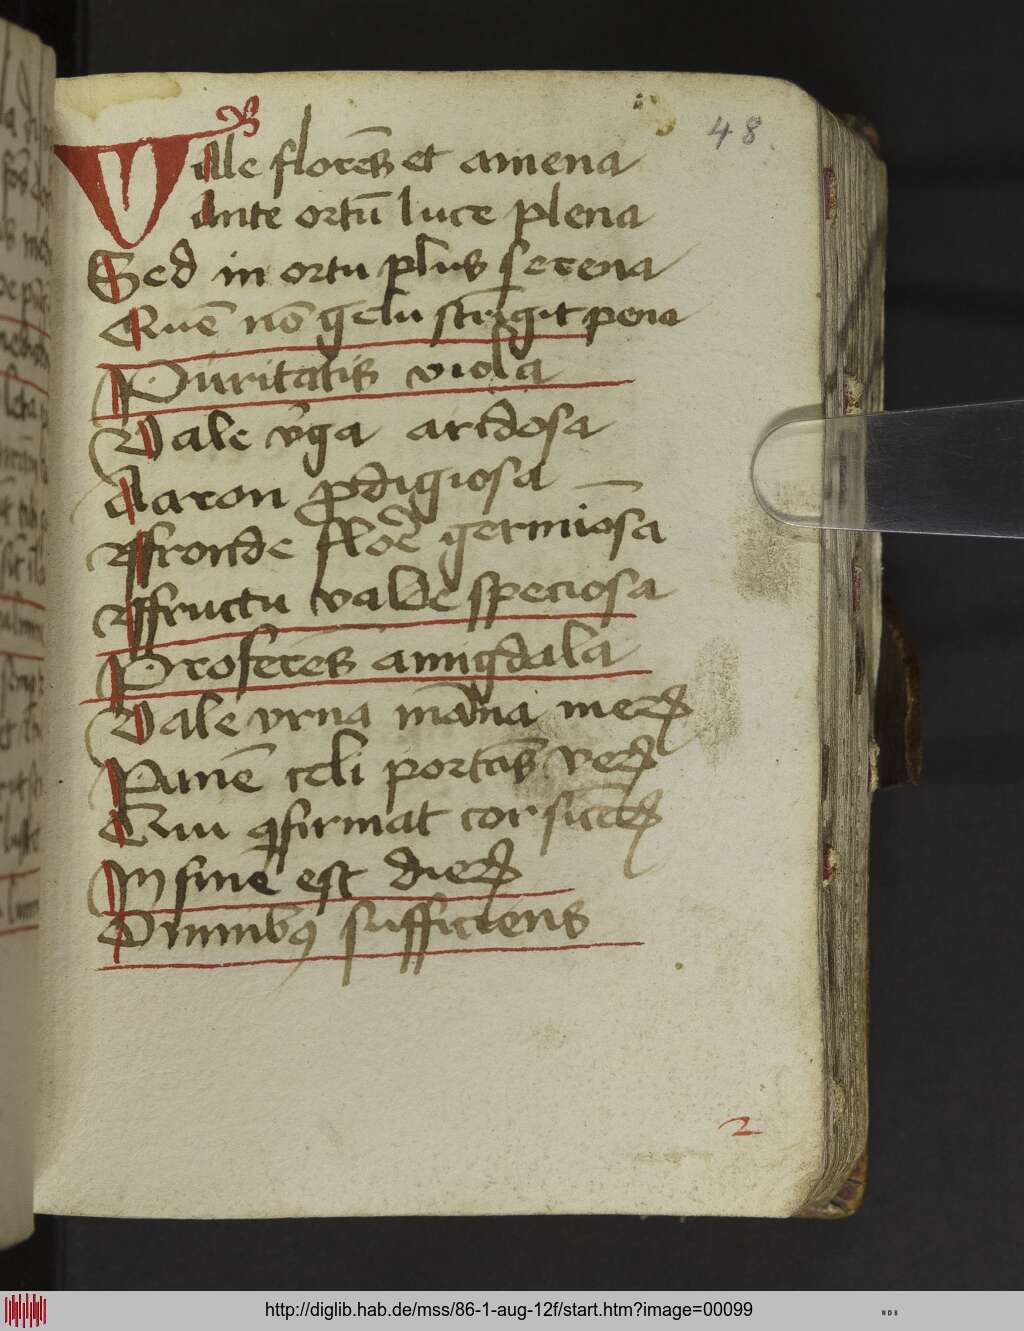 48
Vale florēs et amena
Ante ortū luce plena
Sed in ortu plus serena
Quē nō gelu strīgit pena
Puritatis viola
Vale v̾ga ardosa
Aaron ꝓdigiosa
fronde floꝛē germīosa
fructu valde speciosa
Proferēs amigdala
Vale vrna māna meꝝ
Panē celi portās veꝝ
Qui ꝯfirmat cor sīceꝝ
In fine est dieꝝ
Omnibꝫ sufficiens
2
http://diglib.hab.de/mss/86-1-aug-12f/start.htm?image=00099